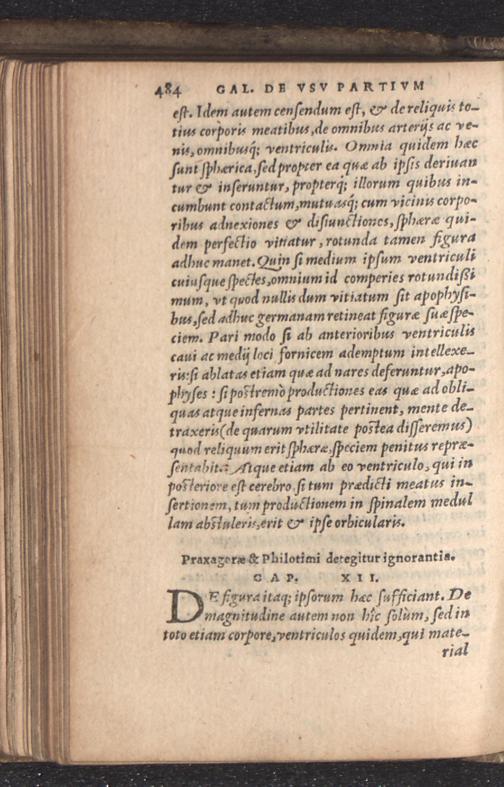 484 GAL. DE VSV PARTIVM
est. Idem autem censendum est, & de reliquis to-
tius corporis meatibus, de omnibus arterijs ac ve-
nis, omnibusq; ventriculis. Omnia quidem hæc
sunt sphærica, sed propter ea quæ ab ipsis deriuan
tur & inseruntur, propterq; illorum quibus in-
cumbunt contactum, mutuasq; cum vicinis corpo-
ribus adnexiones & disiunctiones, sphæræ qui-
dem perfectio vitiatur, rotunda tamen figura
adhuc manet. Quin si medium ipsum ventriculi
cuiusque spectes, omnium id comperies rotundißi
mum, vt quod nullis dum vitiatum sit apophysi-
bus, sed adhuc germanam retineat figuræ suæ spe-
ciem. Pari modo si ab anterioribus ventriculis
caui ac medij loci fornicem ademptum intellexe-
ris: si ablatas etiam quæ ad nares deferuntur, apo-
physes: si postremò productiones eas quæ ad obli-
quas atque infernas partes pertinent, mente de-
traxeris (de quarum vtilitate postea disseremus)
quod reliquum erit sphæræ, speciem penitus repræ-
sentabit. Atque etiam ab eo ventriculo, qui in
posteriore est cerebro, si tum prædicti meatus in-
sertionem, tum productionem in spinalem medul
lam abstuleris, erit & ipse orbicularis.
Praxagoræ & Philotimi detegitur ignorantia.
CAP. XII.
DE figura itaq; ipsorum hæc sufficiant. De
magnitudine autem non hîc solùm, sed in
toto etiam corpore, ventriculos quidem, qui mate-
rial